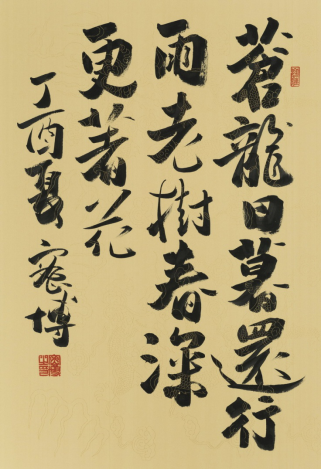 蒼龍日暮還行
雨老樹春深
更著花
丁酉夏
博